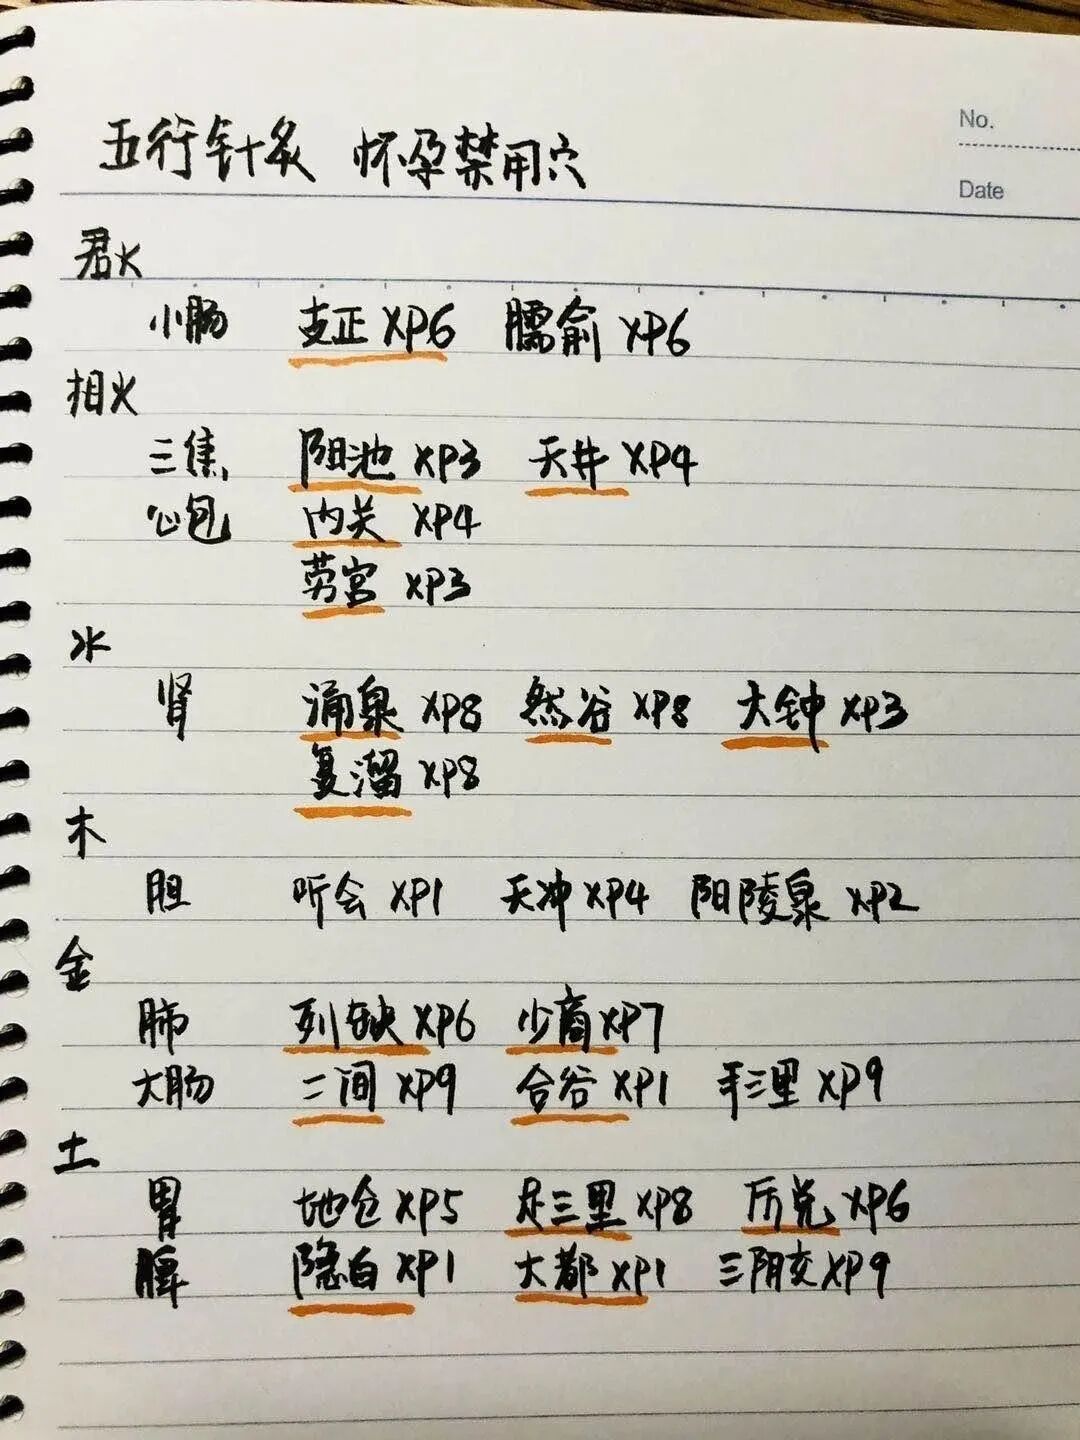 No.
五行针灸 怀孕禁用穴
Date
君火
小肠 支正 XP6 臑俞 XP6
相火
三焦 阳池 XP3 天井 XP4
心包 内关 XP4
劳宫 XP3
水
肾 涌泉 XP8 然谷 XP8 大钟 XP3
复溜 XP8
木
胆 听会 XP1 天冲 XP4 阳陵泉 XP2
金
肺 列缺 XP6 少商 XP7
大肠 二间 XP9 合谷 XP1 手三里 XP9
土
胃 地仓 XP5 足三里 XP8 厉兑 XP6
脾 隐白 XP1 大都 XP1 三阴交 XP9